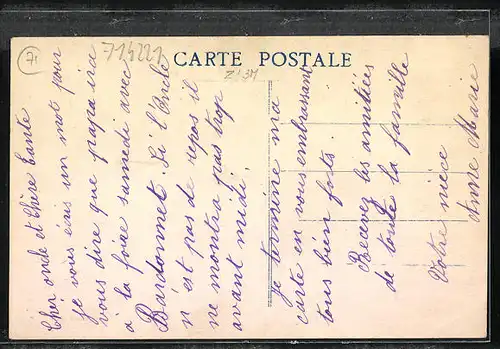 71
714221
CARTE POSTALE
Z 1 34
Cher oncle et chère tante
je vous écris un mot pour
vous dire que papa ira
à la foire samedi avec
Bardonnet. Si l'Oncle
n'est pas de repos il
ne montra pas trop
avant midi.
je termine ma
carte en vous embrassant
tous bien forts.
Recevez les amitiées
de toute la famille
Votre nièce
Anne Marie